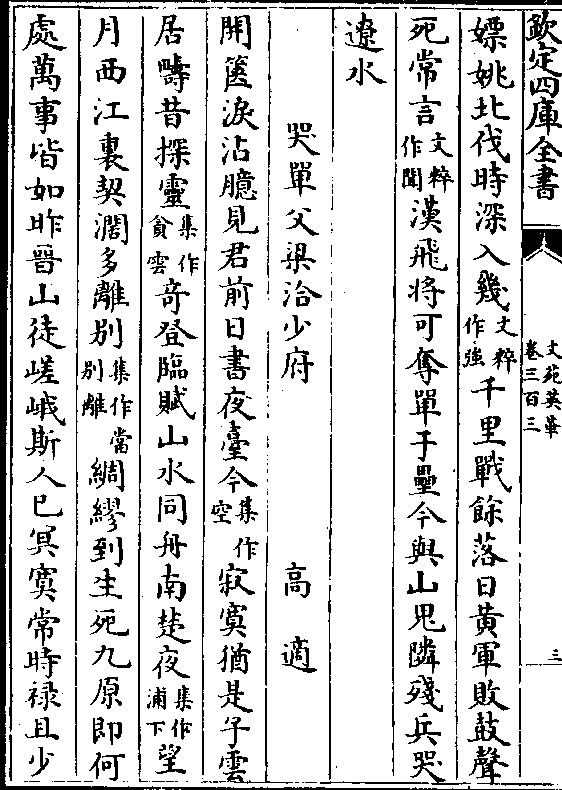 欽定四庫全書
文苑英華
卷三百三
三
嫖姚北伐時深入幾文粹作強千里戰餘落日黄軍敗鼓聲
死常言文粹作聞漢飛將可奪單于壘今與山鬼隣殘兵哭
遼水
哭單父梁洽少府
高適
開篋淚沾臆見君前日書夜臺今集作空寂寞猶是子雲
居疇昔探靈集作貪雲竒登臨賦山水同舟南楚夜集作浦下望
月西江裏契濶多離别集作當别離綢繆到生死九原即何
處萬事皆如昨晉山徒嵯峨斯人已冥寞常時禄且少